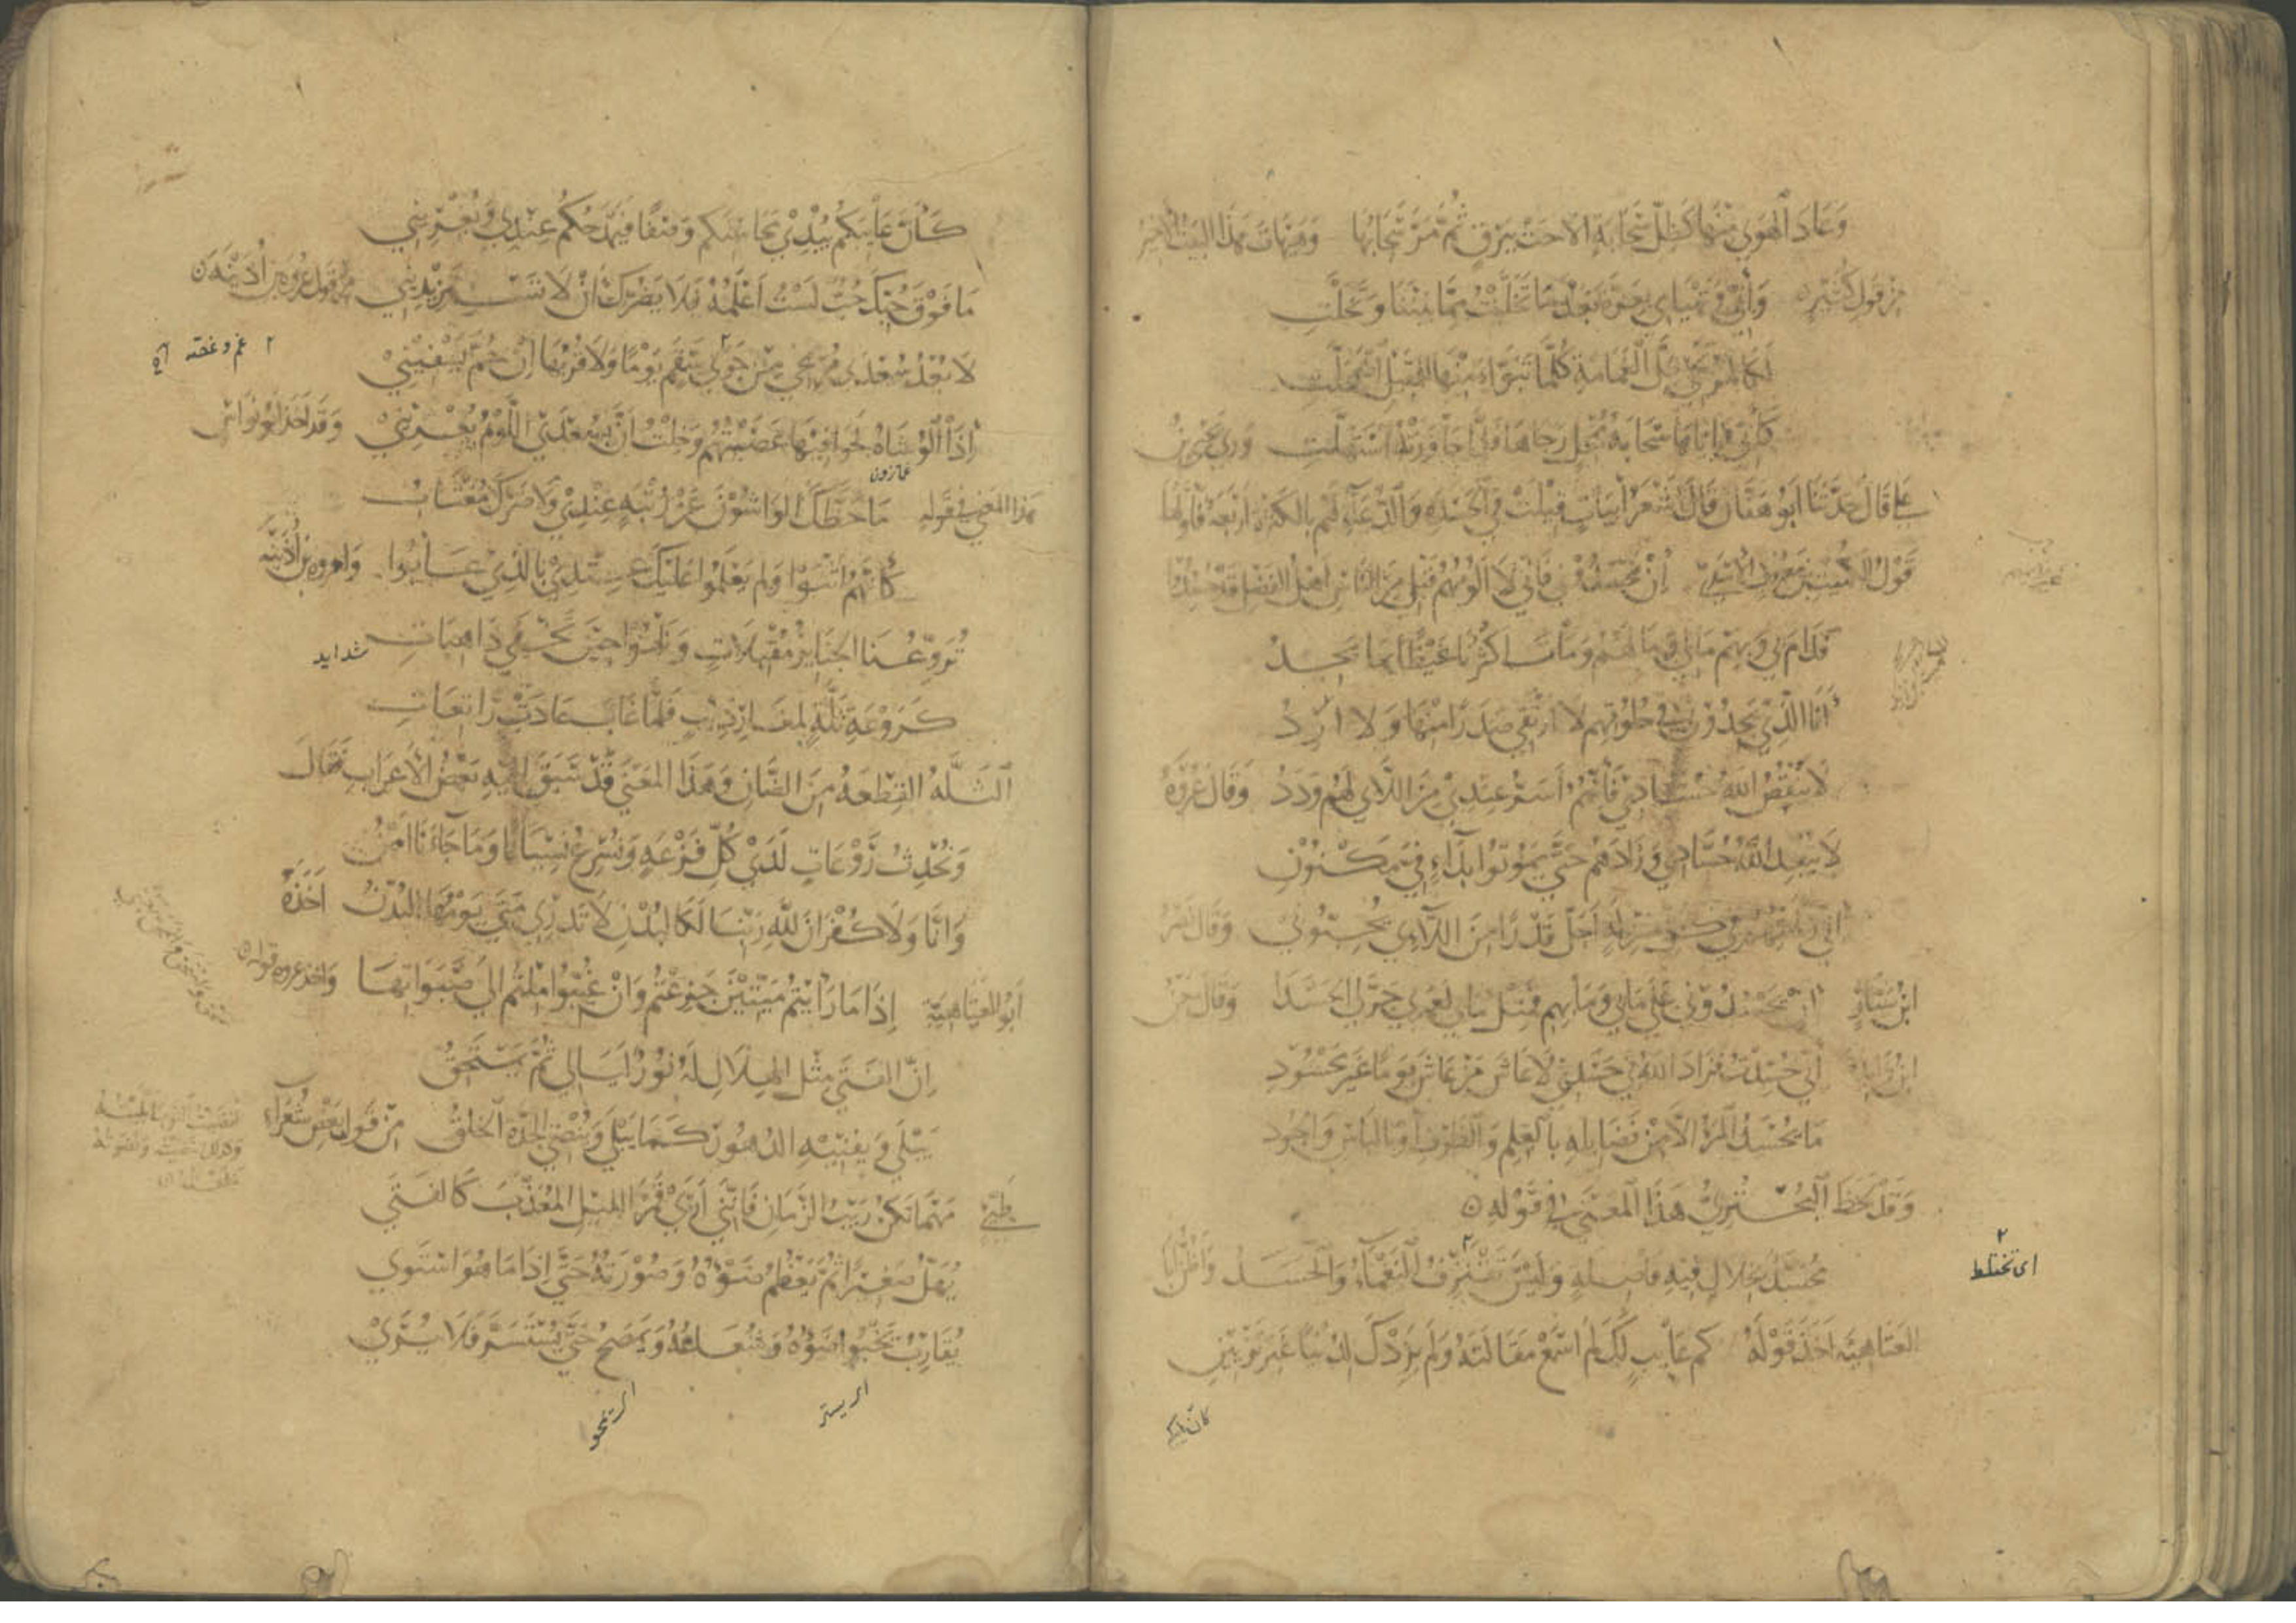 وَعَادَ الهَوى مِنْهَا كَظِلِّ سَحَابَةٍ الاحَتْ بِبَرْقٍ ثُمَّ مَرَّ سَحَابُهَا وَهَيْهَاتَ هَذَا البَيْتُ الأخِيْرُ
مِنْ قَولِ كُثَيِّرٍ وَإنِّي وَتَهْيَامِي بِعَزَّةَ بَعْدَمَا تَخَلَّيْتُ مِمَّا بَيْنَنَا وَتَخَلَّتِ
لَكَالمُرْتَجِي ظِلَّ الغَمَامَةِ كُلَّمَا تَبَوَّأَ مِنْهَا لِلْمَقِيْلِ اضْمَحَلَّتِ
كَأَنِّي وَإيَّاهَا سَحَابَةُ مُمْحِلٍ رَجَاهَا فَلَمَّا جَاوَزَتْهُ اسْتَهَلَّتِ وَرَوَى يَحْيَى بْنُ
عَلي قَالَ حَدَّثَنَا أبُو هَفَّانَ قَالَ أشْعَرُ أبْيَاتٍ قِيْلَتْ فِي الحَسَدِ وَالدُّعَاءِ لَهُم بِالكَثْرَةِ أرْبَعَةٌ فَأوَّلُهَا
قَوْلُ الكُمَيْتِ بنِ مَعْرُوفٍ الأسَدِيّ إنْ يَحْسُدُوْنِي فَإنِّي لَا ألُومُهُم قَبْلِي مِنَ النَّاسِ أهْلُ الفَضْلِ قَدْ حُسِدُوا
فَدَامَ لِي وَبِهِمْ مَا بِي وَمَا بِهِمْ وَمَاتَ أكْثَرُنَا غَيْظًا بِمَا يَجِدُ
أنَا الَّذِي يَجِدُوْنِي فِي حُلُوقِهِم لَا أرْتَقِي صَدَرًا مِنْهَا وَلَا أرِدُ
لَا يَنْقُصُ اللَّهُ حُسَّادِي فَإنَّهُمُ أسَرُّ عِنْدِي مِنَ اللَّائِي لَهُمْ وَدَدُ وَقَالَ عُرْوَةُ
لَا يُبْعِدِ اللَّهُ حُسَّادِي وَزَادَهُمُ حَتَّى يَمُوتُوا بِدَاءٍ فِيَّ مَكْنُوْنِ
إنِّي رَأيْتُهُمُ فِي كُلِّ مَنْزِلَةٍ أجَلَّ قَدْرًا مِنَ اللَّائِي يُحِبُّونِي وَقَالَ نَصْرُ
ابْنُ سَيَّارٍ إنْ يَحْسُدُوْنِي عَلَى مَا بِي وَمَا بِهِم فَمِثْلُ مَا بِي لَعَمْرِي جَرَّ لِي الحَسَدَا وَقَالَ مَعْنُ
ابْنُ زَائِدَة إنِّي حُسِدْتُ فَزَادَ اللَّهُ فِي حَسَدِي لَا عَاشَ مَنْ عَاشَ يَوْمًا غَيْرَ مَحْسُوْدِ
مَا يُحْسَدُ المَرْءُ إلَّا مِنْ فَضَائِلِهِ بِالعِلْمِ وَالظَّرْفِ أوْ بِالبَأسِ وَالجُوْدِ
وَقَدْ لَحَظَ البُحْتُرِيُّ هَذَا المَعْنَى فِي قَوْلِهِ
مُحَسَّدٌ بِخِلَالٍ فِيْهِ فَاضِلَةٍ وَلَيْسَ تَفْتَرِقُ النَّعْمَاءُ وَالحَسَدُ وَأظُنُّ أبَا
اى تختلط
العَتَاهِيَة أخَذَ قَوْلَهُ كَمْ عَائِبٍ لَكِ لَمْ أسْمَعْ مَقَالَتَهُ وَلَمْ يَزِدْكِ لَدَيْنَا غَيْرَ تَزْيِيْنِ
كان عايبكم
كَأنَّ عَائِبَكُمْ يُبْدِي مَحَاسِنَكُم وَصْفًا فَيَمْدَحُكُم عِنْدِي وَيُغْرِيْنِي
مَا فَوْقَ حُبِّكَ حُبٌّ لَسْتُ أعْلَمُهُ فَلَا يَضُرُّكِ أنْ لَا تَسْتَزِيْدِيْنِي مِنْ قَولِ عُرْوَة بن أُذَيْنَة
لَا بُعْدُ سُعْدَى مُرِيْحِي مِنْ جَوَى سَقَمٍ يَوْمًا وَلَا قُرْبُهَا إنْ حُمَّ يَشْفِيْنِي
٢ غم و غصه
إذَا الوُشَاةُ لَحَوا فِيْهَا عَصَيْتُهُمُ وَخِلْتُ أنَّ بِسُعْدَى اللَّوْمُ يُغْرِيْنِي وَقَد أخَذَ أبُو نُوَاسٍ
غمازون
هَذَا المَعْنَى فِي قَوْلِهِ مَا حَطَّكَ الوَاشُوْنَ عَنْ رُتْبَةٍ عِنْدِي وَلَا ضَرَّكَ مُغْتَابُ
كَأنَّهُمْ أثْنَوْا وَلَم يَعْلَمُوا عَلَيْكَ عِنْدِي بِالَّذِي عَابُوا وَلعروة بن أُذَيْنَة
تُرَوِّعُنَا الجَنَائِزُ مُقْبِلَاتٍ وَنَلْهُوا حِيْنَ تَخْفَى ذَاهِبَاتِ شدايد
كَرَوْعَةِ ثَلَّةٍ لِمَغَارِ ذِئْبٍ فَلَمَّا غَابَ عَادَتْ رَاتِعَاتِ
الثَّلَّةُ القِطْعَةُ مِنَ الضَّأنِ وَهَذَا المَعْنَى قَدْ سَبَقَ إلَيْهِ بَعْضُ الأعْرَابِ فَقَالَ
وَنُحْدِثُ رَوْعَاتٍ لَدَى كُلِّ فَزْعَةٍ وَنُسْرِعُ نِسْيَانًا وَمَا جَاءَنَا أمْنُ
وَإنَّا وَلَا كُفْرَانَ للَّهِ رَبِّنَا لَكَالبُدْنِ لَا تَدْرِي مَتَى يَوْمُهَا البُدْنُ أخَذَهُ
أبُو العَتَاهِيَة إذَا مَا رَأيْتُمْ مَيِّتِيْنَ جَزِعْتُمُ وَإنْ غُيِّبُوا مِلْتُم إلَى صَبَوَاتِهَا وَأخذ عروة قوله
إنَّ الفَتَى مِثْلُ الهِلَالِ لَهُ نُوْرٌ لَيَالِي ثُمَّ يَمَّحِقُ
يَبْلَى وَيفْنِيْهِ الدُّهُورُ كَمَا يَبْلَى وَيُنْضِي الجِدَّةَ الخَلَقُ مِنْ قَولِ بَعْضِ شُعَرَاءِ
طَيِّئٍ مَهْمَا يَكُنْ رَيْبُ الزَّمَانِ فَإنَّنِي أرَى قَمَرَ اللَّيْلِ المُعَذَّبَ كَالفَتَى
يُهِلُّ صَغِيْرًا ثُمَّ يَعْظُمُ ضَوْؤُهُ وَصُوْرَتُهُ حَتَّى إذَا مَا هُوَ اسْتَوَى
يُقَارِبُ يَخْبُو ضَوْؤُهُ وَشُعَاعُهُ وَيَمْصَحُ حَتَّى يُسْتَسَرَّ فَلَا يُرَى